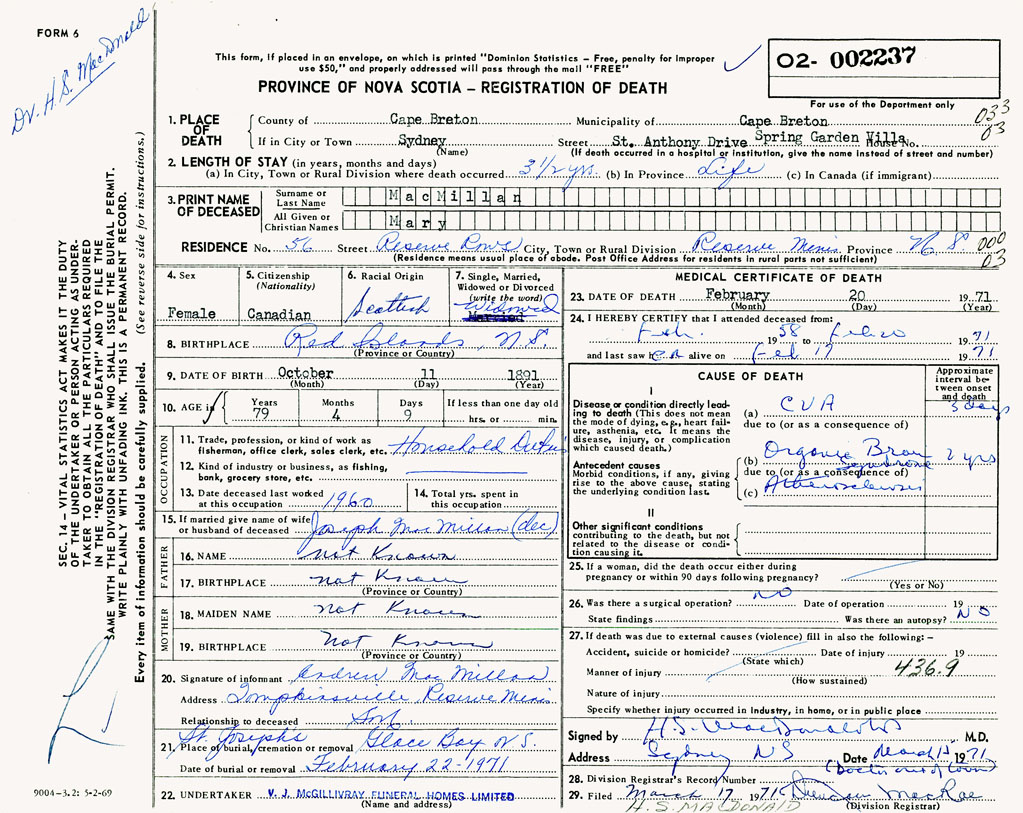 FORM 6
Dr. H. S. MacDonald
This form, if placed in an envelope, on which is printed "Dominion Statistics – Free, penalty for improper
use $50," and properly addressed will pass through the mail "FREE"
PROVINCE OF NOVA SCOTIA – REGISTRATION OF DEATH
02- 002237
For use of the Department only
033
03
1. PLACE OF DEATH
County of Cape Breton Municipality of Cape Breton
If in City or Town Sydney Street St. Anthony Drive Spring Garden Villa House No.
(Name) (If death occurred in a hospital or institution, give the name instead of street and number)
2. LENGTH OF STAY (in years, months and days)
(a) In City, Town or Rural Division where death occurred 3 1/2 yrs. (b) In Province Life (c) In Canada (if immigrant)
3. PRINT NAME OF DECEASED
Surname or Last Name MacMillan
All Given or Christian Names Mary
RESIDENCE No. 56 Street Reserve Rows City, Town or Rural Division Reserve Mines Province N.S. 000
(Residence means usual place of abode. Post Office Address for residents in rural parts not sufficient) 03
4. Sex
Female
5. Citizenship
(Nationality)
Canadian
6. Racial Origin
Scottish
7. Single, Married,
Widowed or Divorced
(write the word)
Widowed
Married
8. BIRTHPLACE Red Islands, N.S.
(Province or Country)
9. DATE OF BIRTH October 11 1891
(Month) (Day) (Year)
10. AGE in Years Months Days If less than one day old
79 4 9 hrs. or min.
OCCUPATION
11. Trade, profession, or kind of work as
fisherman, office clerk, sales clerk, etc. Household Duties
12. Kind of industry or business, as fishing,
bank, grocery store, etc.
13. Date deceased last worked
at this occupation 1960
14. Total yrs. spent in
this occupation
15. If married give name of wife
or husband of deceased Joseph MacMillan (dec)
FATHER
16. NAME not Known
17. BIRTHPLACE not Known
(Province or Country)
MOTHER
18. MAIDEN NAME not Known
19. BIRTHPLACE Not Known
(Province or Country)
20. Signature of informant Andrew MacMillan
Address Tompkinsville, Reserve Mines
Relationship to deceased Son
St. Joseph's
21. Place of burial, cremation or removal Glace Bay N.S.
Date of burial or removal February 22-1971
22. UNDERTAKER V. J. McGILLIVRAY FUNERAL HOMES LIMITED
(Name and address)
MEDICAL CERTIFICATE OF DEATH
23. DATE OF DEATH February 20 1971
(Month) (Day) (Year)
24. I HEREBY CERTIFY that I attended deceased from:
Feb. 1958 to Feb 20 1971
and last saw her alive on Feb 17 1971
CAUSE OF DEATH
Approximate
interval be-
tween onset
and death
I
Disease or condition directly lead-
ing to death (This does not mean
the mode of dying, e.g., heart fail-
ure, asthenia, etc. It means the
disease, injury, or complication
which caused death.)
(a) CVA 3 days
due to (or as a consequence of)
Antecedent causes
Morbid conditions, if any, giving
rise to the above cause, stating
the underlying condition last.
(b) Organic Brain Syndrome 2 yrs
due to (or as a consequence of)
(c) Atherosclerosis
II
Other significant conditions
contributing to the death, but not
related to the disease or condi-
tion causing it.
25. If a woman, did the death occur either during
pregnancy or within 90 days following pregnancy?
(Yes or No)
26. Was there a surgical operation? NO Date of operation 19
State findings Was there an autopsy? NO
27. If death was due to external causes (violence) fill in also the following: –
Accident, suicide or homicide? Date of injury 19
(State which)
Manner of injury 436.9
(How sustained)
Nature of injury
Specify whether injury occurred in industry, in home, or in public place
Signed by H.S. MacDonald M.D.
Address Sydney NS Date March 15 1971
(Doctor out of town)
28. Division Registrar's Record Number
29. Filed March 17 1971 MacRae
H. S. MACDONALD (Division Registrar)
SEC. 14 – VITAL STATISTICS ACT MAKES IT THE DUTY
OF THE UNDERTAKER OR PERSON ACTING AS UNDER-
TAKER TO OBTAIN ALL THE PARTICULARS REQUIRED
IN THE "REGISTRATION OF DEATH" AND TO FILE THE
SAME WITH THE DIVISION REGISTRAR WHO SHALL ISSUE THE BURIAL PERMIT.
WRITE PLAINLY WITH UNFADING INK. THIS IS A PERMANENT RECORD.
Every item of information should be carefully supplied. (See reverse side for instructions.)
9004-3.2: 5-2-69